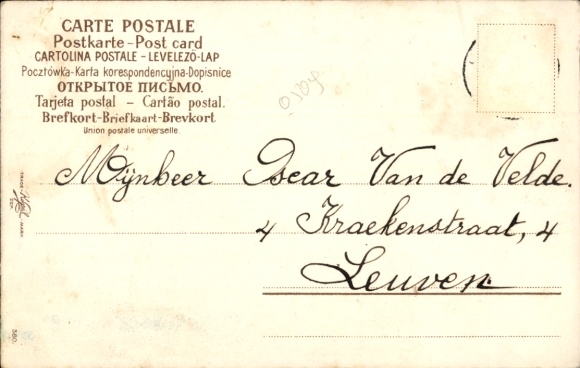 CARTE POSTALE
Postkarte - Post card
CARTOLINA POSTALE - LEVELEZÖ-LAP
Pocztówka-Karta korespondencyjna-Dopisnice
ОТКРЫТОЕ ПИСЬМО.
Tarjeta postal - Cartão postal.
Brefkort-Briefkaart-Brevkort
Union postale universelle.
Mijnheer Oscar Van de Velde.
4 Kraekenstraat, 4
Leuven
TRADE
MARK
380